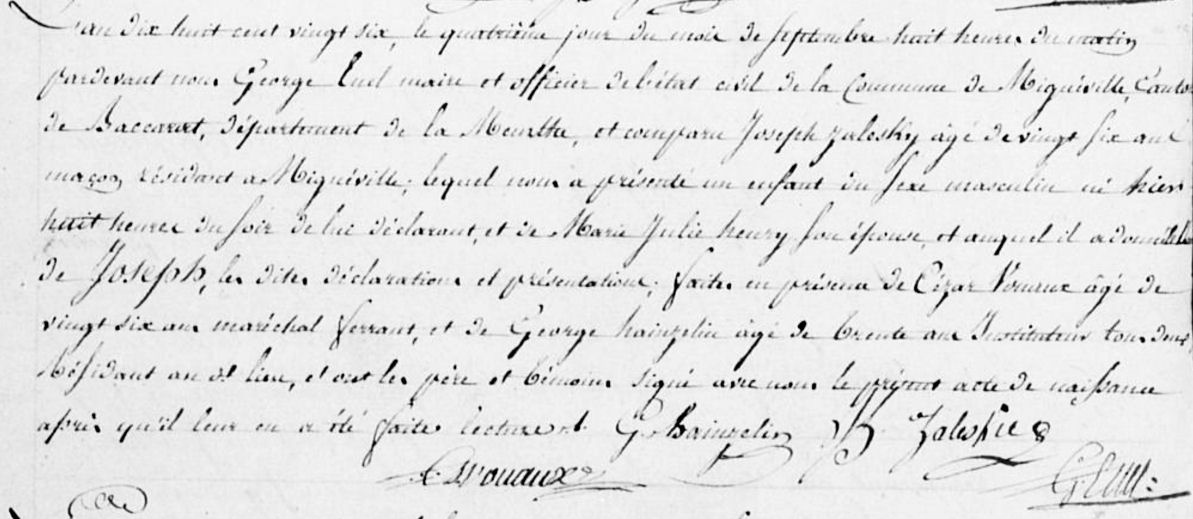 L'an dix huit cent vingt six, le quatrième jour du mois de septembre huit heures du matin
pardevant nous George Euel maire et officier de l'état civil de la Commune de Migneville, Canton
de Baccarat, département de la Meurthe, et comparu Joseph Zalesky âgé de vingt six ans
maçon résidant a Mignéville; lequel nous a présenté un enfant du sexe masculin né hier
huit heures du soir de lui déclarant, et de Marie Julie henry son épouse, et auquel il a donné
de Joseph, les dites déclarations et présentations, faites en présence de Cézar Vouaux âgé de
vingt six ans maréchal ferrant, et de George hainzelin âgé de trente ans Instituteur tous deux
Résidant au dt lieu, et ont les père et témoins signé avec nous le présent acte de naissance
après qu'il leur en a été faite lecture
G. hainzelin Zaleskie
C. Vouaux
G. Euel